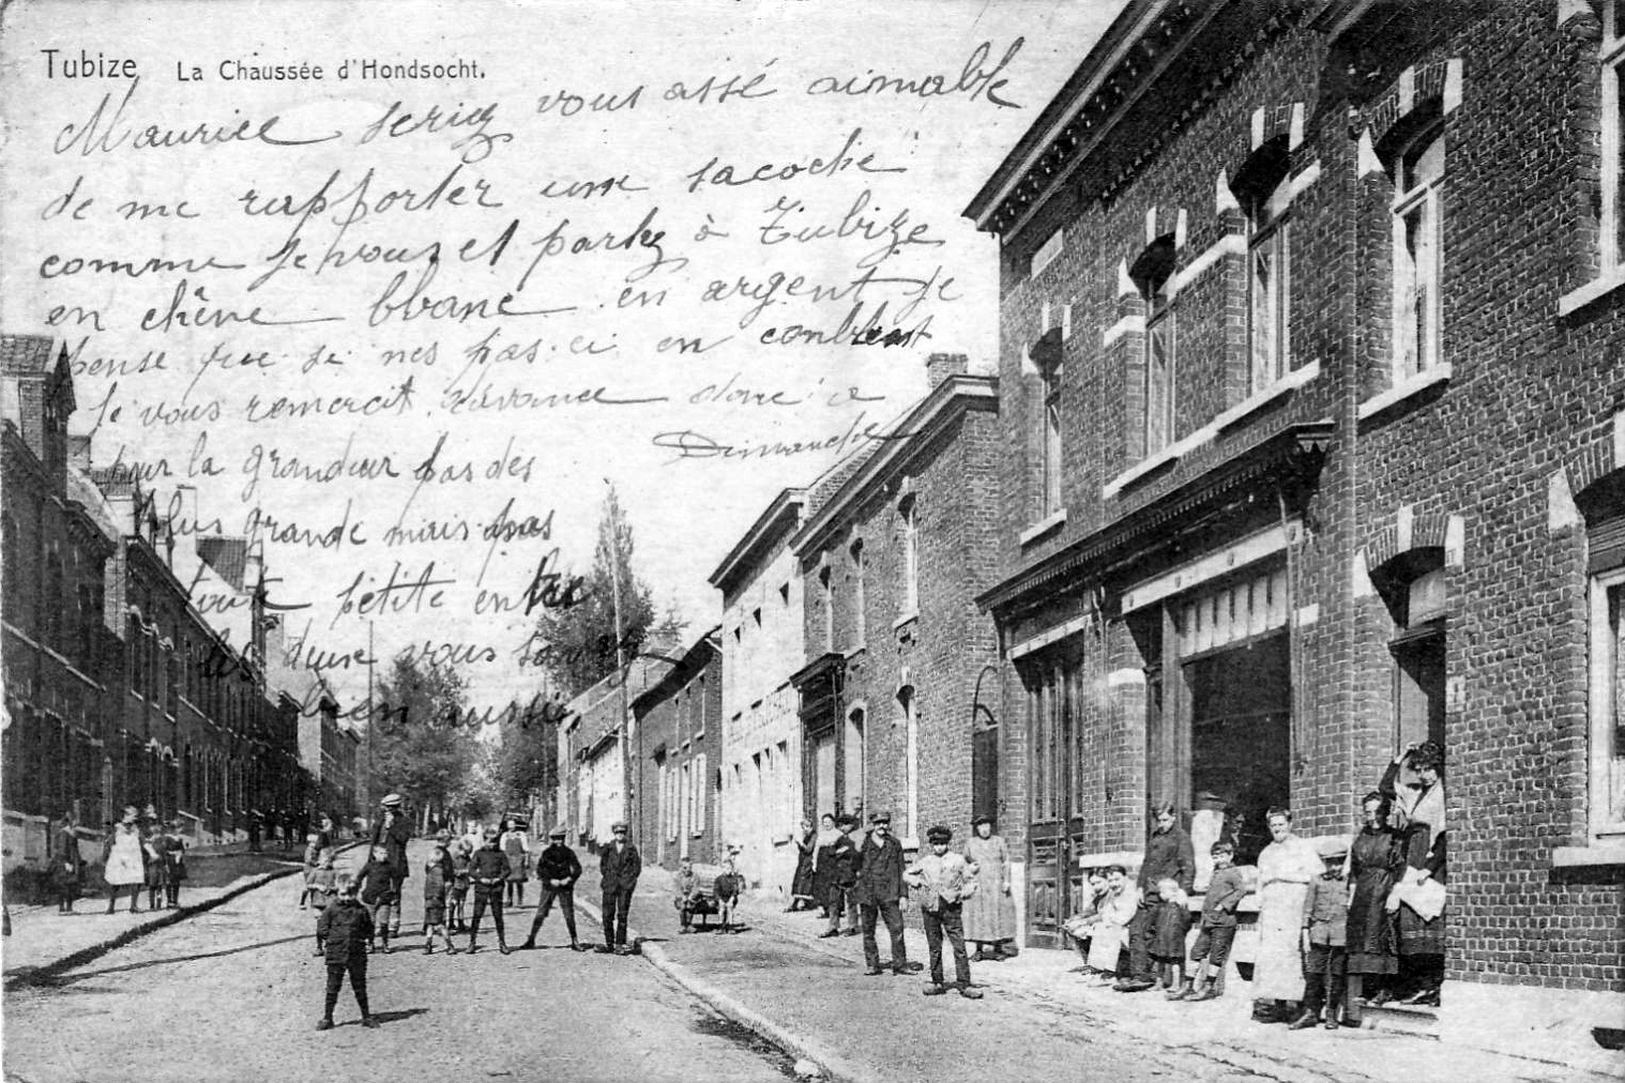 Tubize La Chaussée d'Hondsocht.
Maurice seriez vous assé aimable
de me rapporter une sacoche
comme je vous et parlez à Tubize
en chêne blanc en argent je
pense que se nes pas ci en
Je vous remercit davance donc a
Dimanche
pour la grandeur pas des
plus grande mais pas
toute petite entre
les deux vous savez
bien aussie,